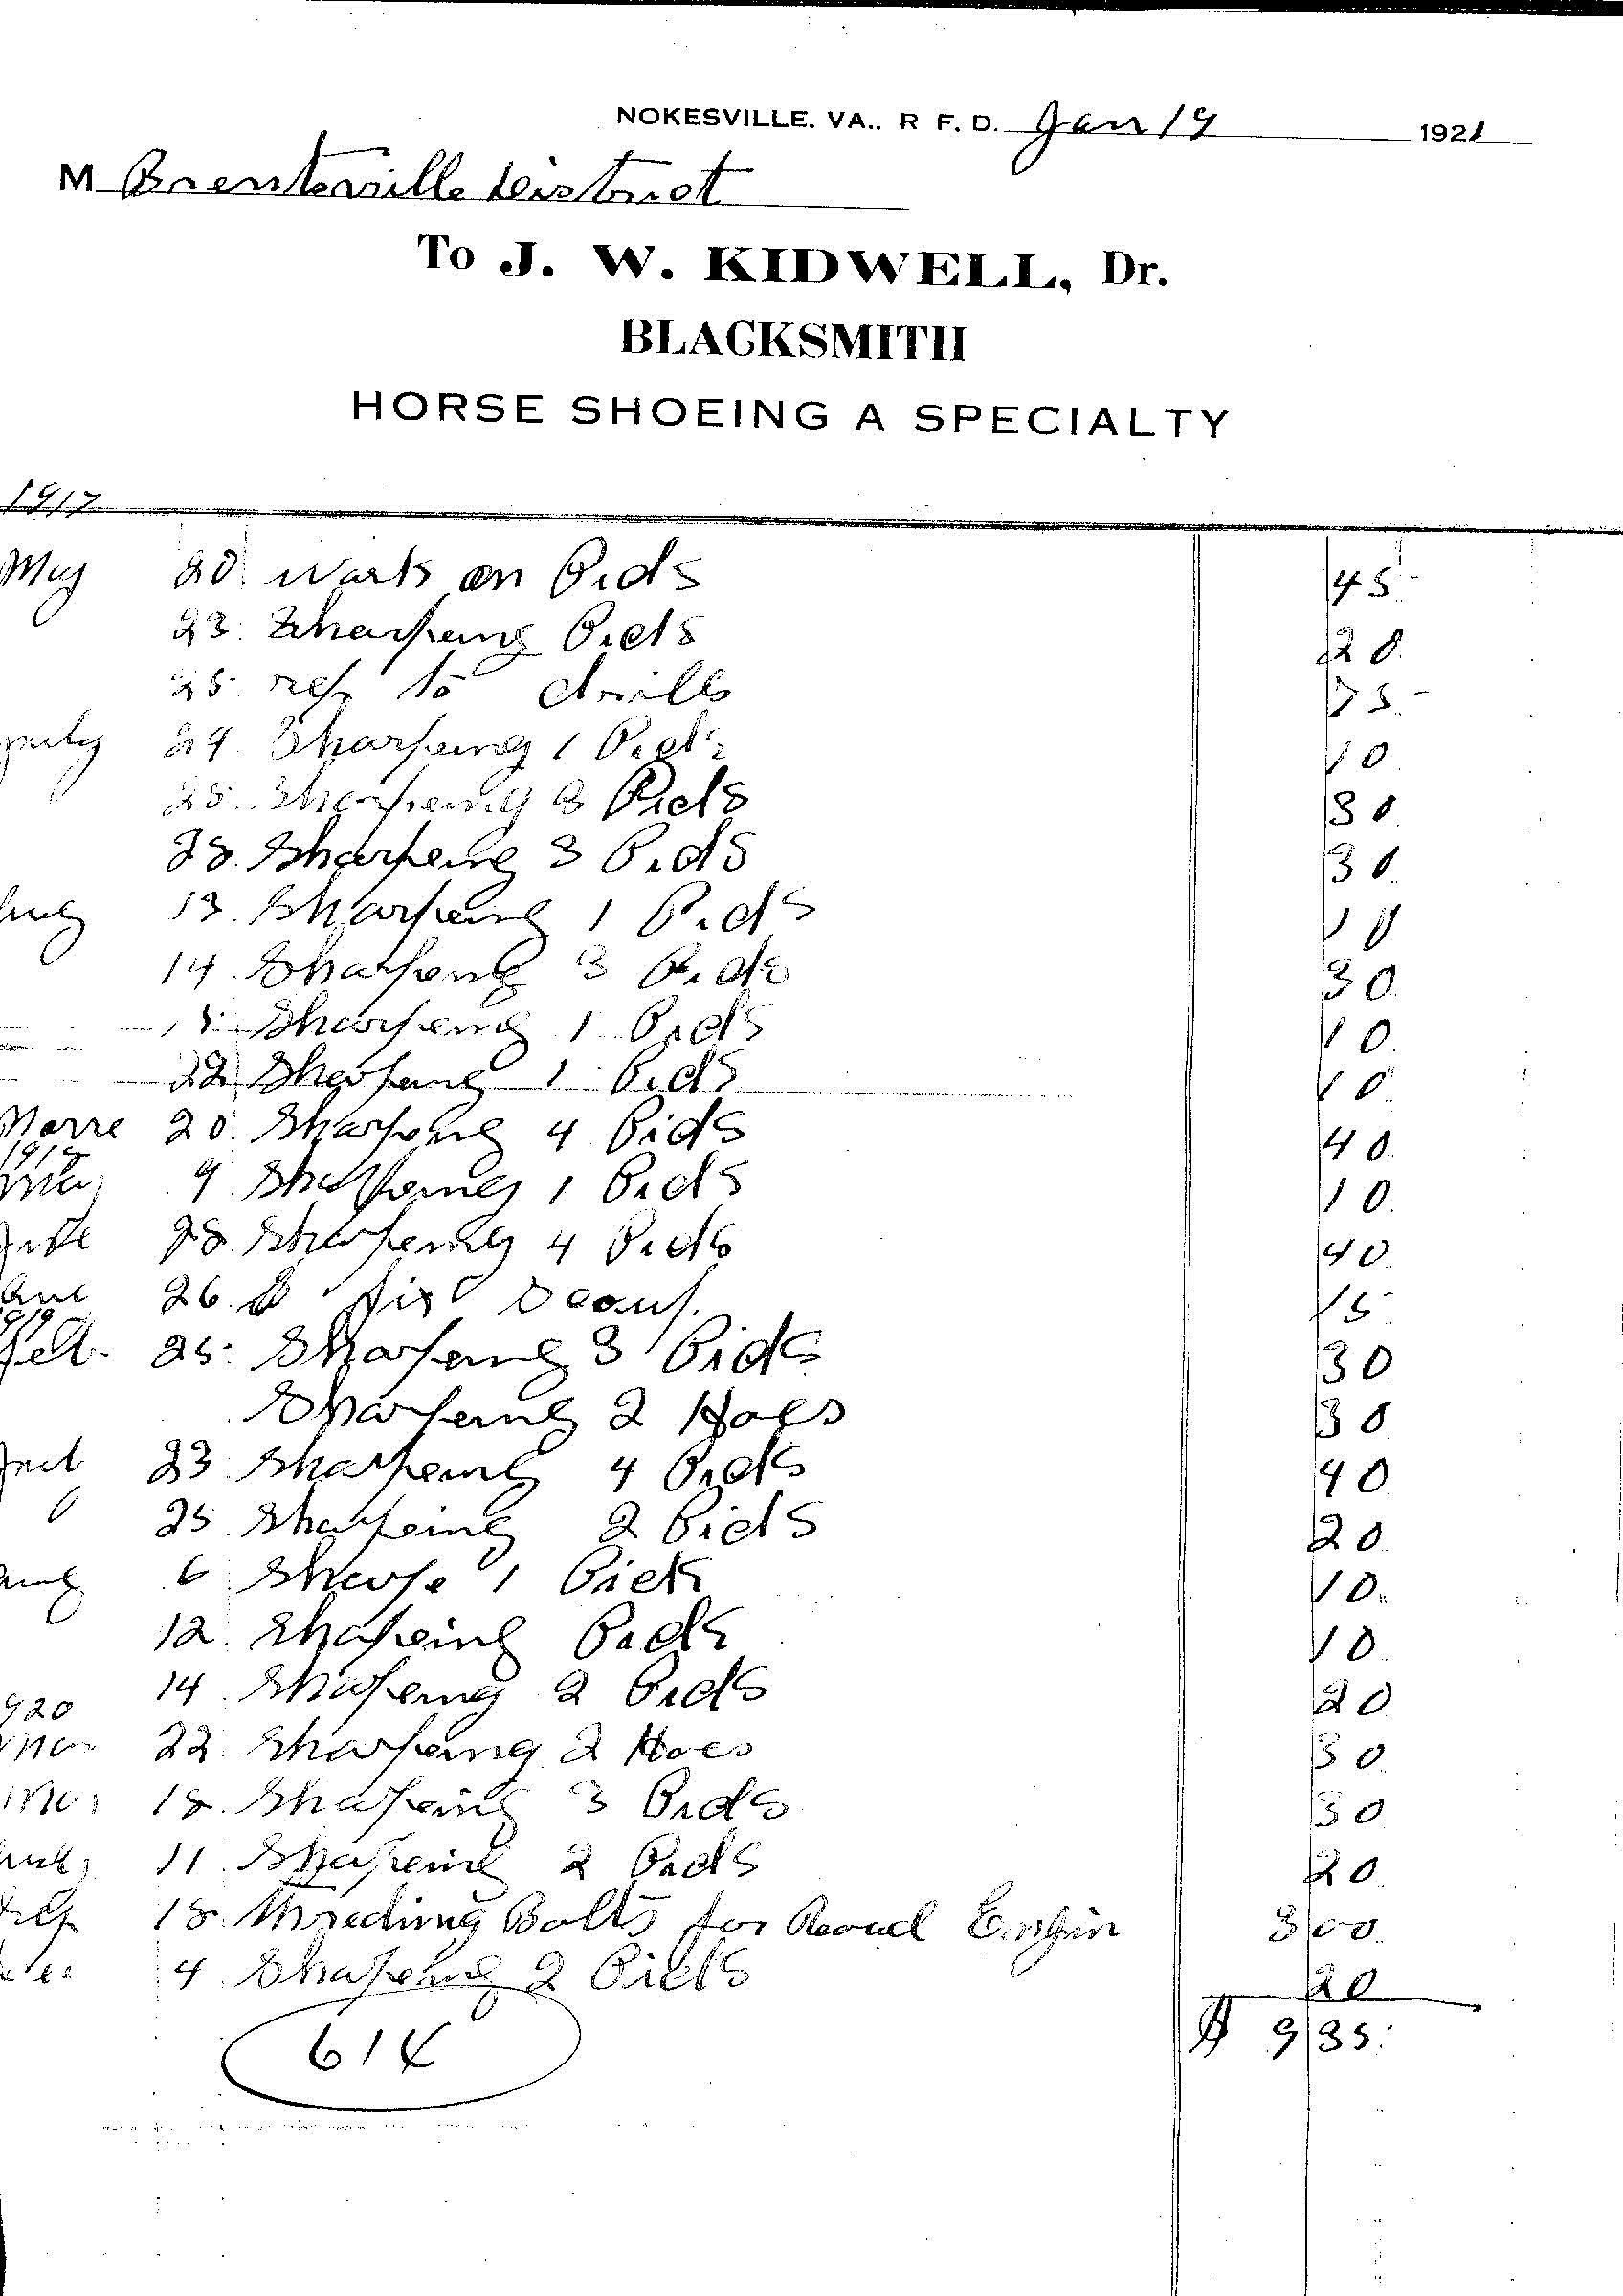 NOKESVILLE. VA.. R F. D. Jan 19 1921
M Brentsville District
To J. W. KIDWELL, Dr.
BLACKSMITH
HORSE SHOEING A SPECIALTY
1917
May 20 Work on Picks 45
23 Sharpeing Picks 20
25 rep to drills 75
july 24 Sharpeing 1 Picks 10
25 Sharpeing 3 Picks 30
28 Sharpeing 3 Picks 30
Aug 13 Sharpeing 1 Picks 10
14 Sharpeing 3 Picks 30
Sharpeing 1 Picks 10
22 Sharpeing 1 Picks 10
20 Sharpeing 4 Picks 40
9 Sharpeing 1 Picks 10
28 Sharpeing 4 Picks 40
26 fix 15
1919
Feb 25 Sharpeing 3 Picks 30
Sharpeing 2 Hoes 30
23 Sharpeing 4 Picks 40
25 Sharpeing 2 Picks 20
Aug 6 Sharpe 1 Pick 10
12 Sharpeing Picks 10
14 Sharpeing 2 Picks 20
920
22 Sharpeing 2 Hoes 30
18 Sharpeing 3 Picks 30
11 Sharpeing 2 Picks 20
18 Thredimg Bolts for Roaud Engin 3 00
4 Sharpeing 2 Picks 20
$ 9 35
614